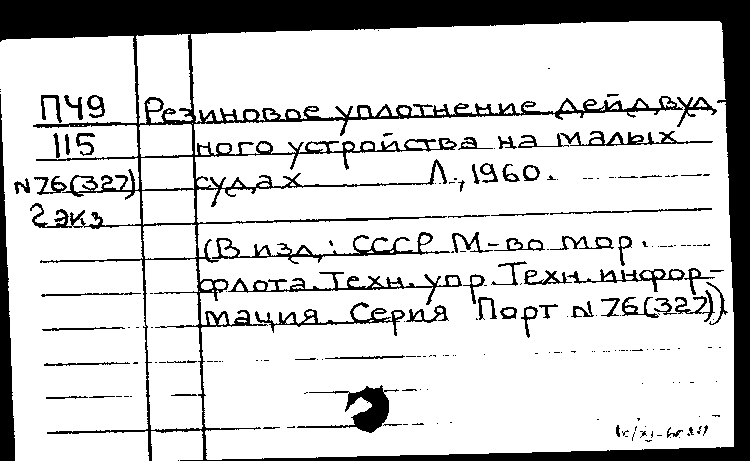 П49 Резиновое уплотнение дейдвуд-
115 ного устройства на малых
N76(327) судах Л., 1960.
2 экз
(В изд,: СССР М-во мор.
флота. Техн. упр. Техн. инфор-
мация. Серия Порт N 76(327)).